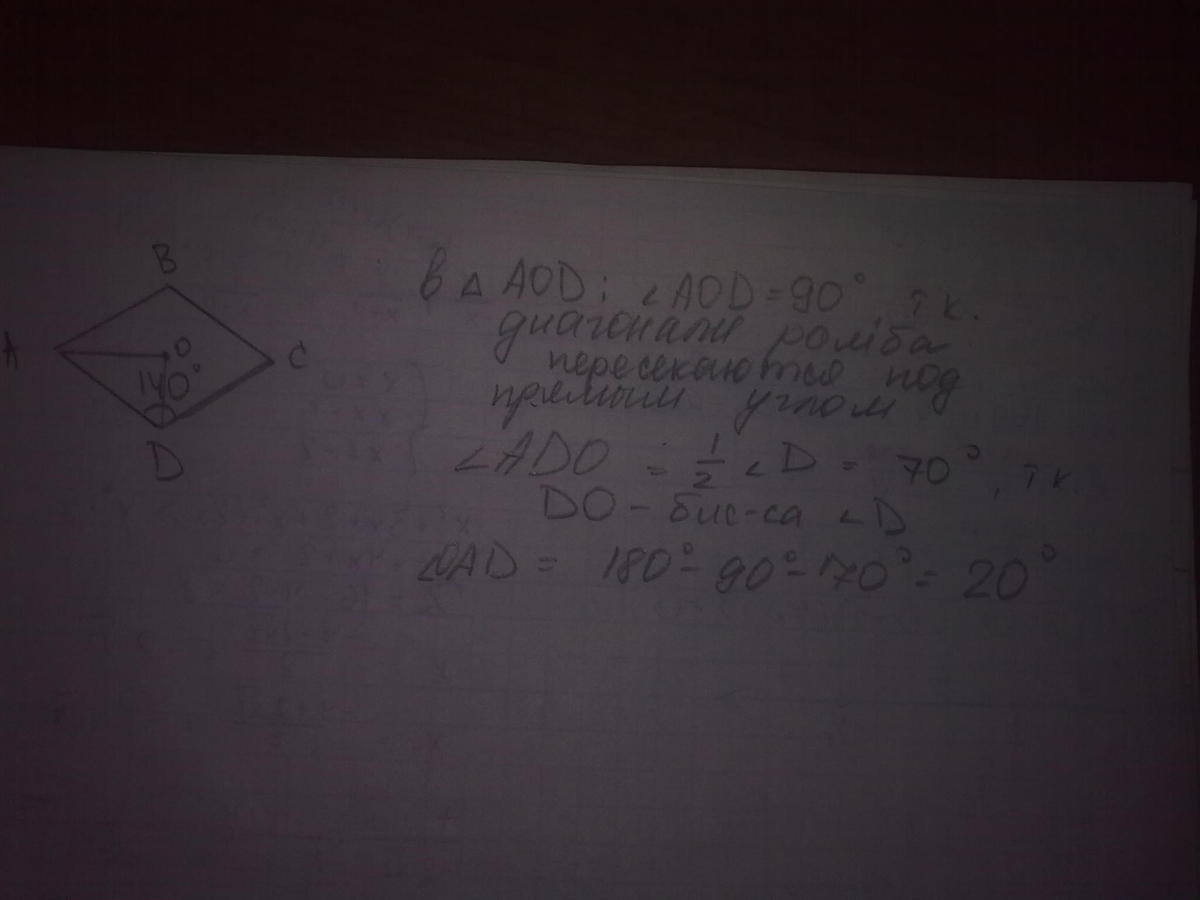 B
A
O
C
140°
D
В △ AOD: ∠AOD = 90°, т.к.
диагонали ромба
пересекаются под
прямым углом
∠ADO = 1/2 ∠D = 70°, т.к.
DO - бис-са ∠D
∠OAD = 180° - 90° - 70° = 20°